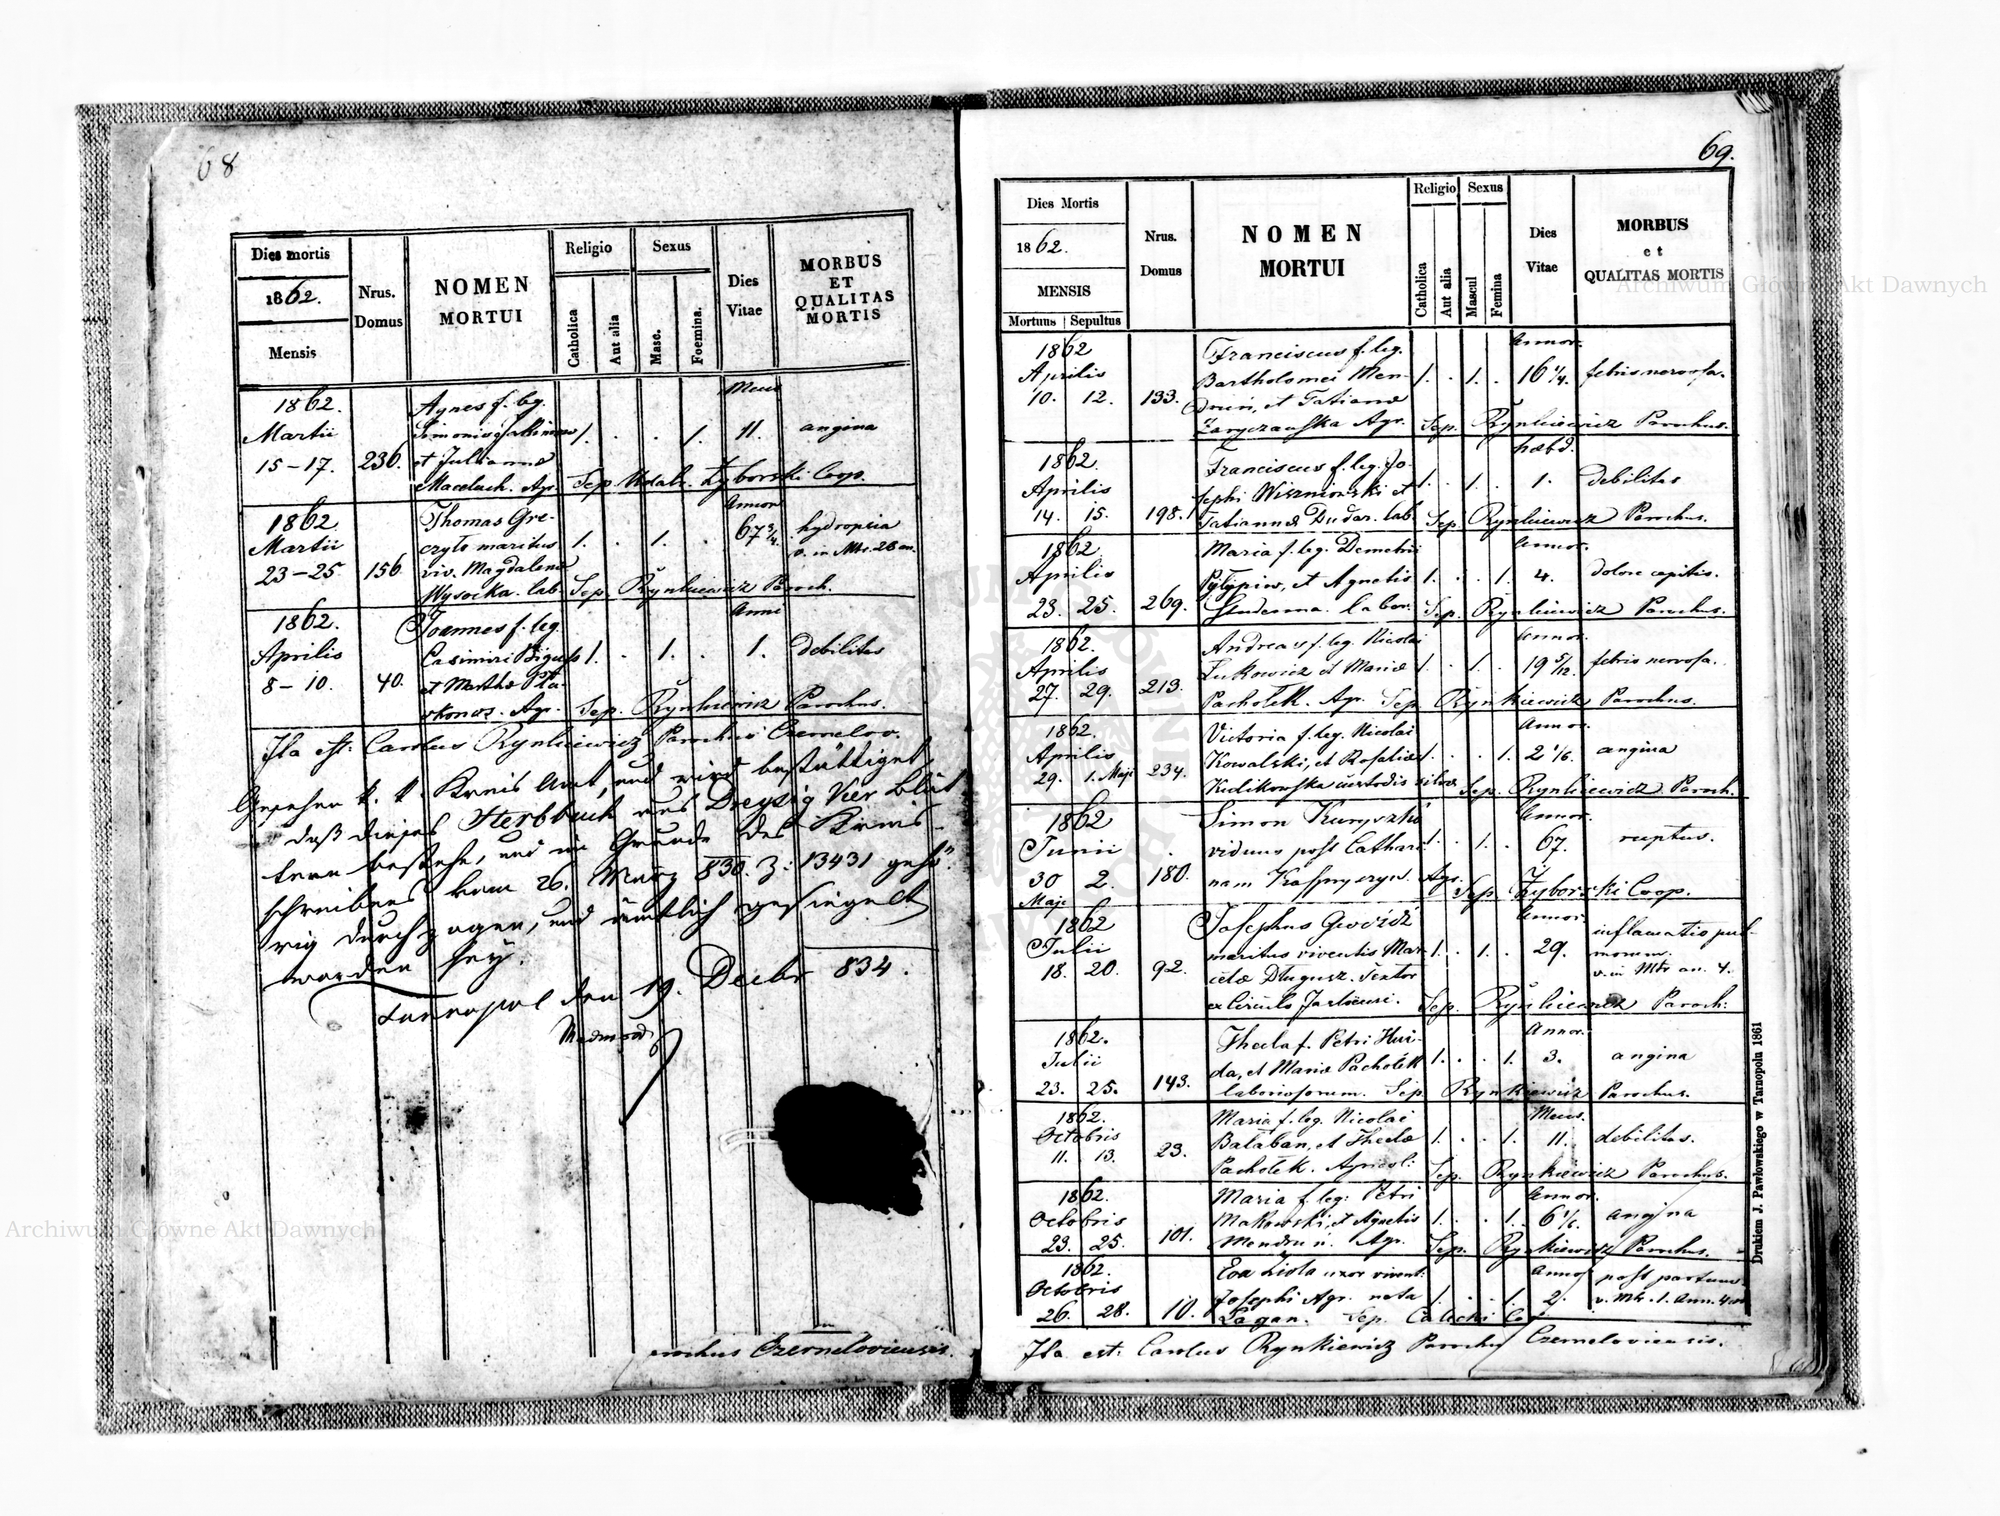 68
Dies mortis
1862.
Mensis
Nrus.
Domus
NOMEN
MORTUI
Religio
Catholica
Aut alia
Sexus
Masc.
Foemina.
Dies
Vitae
MORBUS
ET
QUALITAS
MORTIS
1862.
Martii
15-17.
236.
Agnes f. leg.
Simonis
et Julianna
Maceluch. Agr.
1. . . 1.
Mens
11.
angina
Sep. Udalr. Zyborski Coop.
1862
Martii
23-25
156
Thomas Gre-
czyło maritus
viv. Magdalena
Wysocka. lab.
1. . 1. .
Annor
67 3/4.
hydropsia
v. in Mtr. 28 an.
Sep. Rynkiewicz Paroch.
1862.
Aprilis
8-10.
40.
Joannes f. leg.
Casimiri Bigus
et Martha Pta-
Agr.
1. . 1. .
Anni
1.
debilitas
Sep. Rynkiewicz Parochus.
Ita est: Carolus Rynkiewicz Parochus Czernelov.
Gesehen k. k. Kreis Amt, und wird bestättiget,
daß dieses Sterbbuch aus Dreysig Vier Blät
tern bestehe, und im Grunde des Kreis-
schreibens vom 26. März 830. Z: 13431 gehö-
rig durchzogen, und ämtlich gesiegelt
worden sey.
Tarnopol den 19. Decbr 834.
rochus Czerneloviensis.
69.
Dies Mortis
1862.
MENSIS
Mortuus Sepultus
Nrus.
Domus
NOMEN
MORTUI
Religio
Catholica
Aut alia
Sexus
Mascul
Femina
Dies
Vitae
MORBUS
et
QUALITAS MORTIS
1862
Aprilis
10. 12.
133.
Franciscus f. leg.
Bartholomei Men-
druń, et Tatianna
Zaryczańska Agr.
1. . 1. .
Annor.
16 1/4.
febris nervosa.
Sep. Rynkiewicz Parochus.
1862.
Aprilis
14. 15.
198.
Franciscus f. leg. Jo-
sephi Wiszniowski et
Tatianna Dudar. lab.
1. . 1. .
hebd.
1.
debilitas
Sep. Rynkiewicz Parochus.
1862
Aprilis
23. 25.
269.
Maria f. leg. Demetrii
Pyłypiw, et Agnetis
labor.
1. . . 1.
Annor.
4.
dolore capitis.
Sep. Rynkiewicz Parochus.
1862.
Aprilis
27. 29.
213.
Andreas f. leg. Nicolai
Łukowicz et Maria
Pachołek. Agr.
1. . 1. .
Annor.
19 5/12.
febris nervosa.
Sep. Rynkiewicz Parochus.
1862.
Aprilis
29. 1. Maji
234.
Victoria f. leg. Nicolai
Kowalski, et Rosalia
Kulikowska custodis silvae
1. . . 1.
Annor.
2 1/6.
angina
Sep. Rynkiewicz Paroch.
1862
Junii
30 2.
Maji
180.
Simon Kuryszko
viduus post Cathari-
nam Kasprszyn. Agr.
1. . 1. .
Annor.
67.
ruptus.
Sep. Zyborski Coop.
1862
Julii
18. 20.
92.
Josephus Gwóźdź
maritus viventis Mar-
Długusz. textor
ex Circulo Jasliensi.
1. . 1. .
Annor.
29.
inflamatio pul-
monum.
v. in Mtr an. 4.
Sep. Rynkiewicz Paroch:
1862.
Julii
23. 25.
143.
Thecla f. Petri Hui-
da, et Maria Pachołek
laboriosorum.
1. . . 1.
Annor.
3.
angina
Sep. Rynkiewicz Parochus.
1862.
Octobris
11. 13.
23.
Maria f. leg. Nicolai
Bałaban, et Thecla
Pachołek. Agricol:
1. . . 1.
Mens.
11.
debilitas.
Sep. Rynkiewicz Parochus.
1862.
Octobris
23. 25.
101.
Maria f. leg: Petri
Makowski, et Agnetis
Mendruń. Agr.
1. . . 1.
Annor.
6 1/6.
angina
Sep. Rynkiewicz Parochus.
1862.
Octobris
26. 28.
10.
Eva Zioła uxor vivent.
Josephi Agr. nata
Pagan.
1. . . 1.
Annor
post partum
v. Mtr. 1. Ann.
Sep. Całecki Co
Ita est: Carolus Rynkiewicz Parochus Czerneloviensis.
Drukiem J. Pawłowskiego w Tarnopolu 1861
Archiwum Główne Akt Dawnych
Archiwum Główne Akt Dawnych